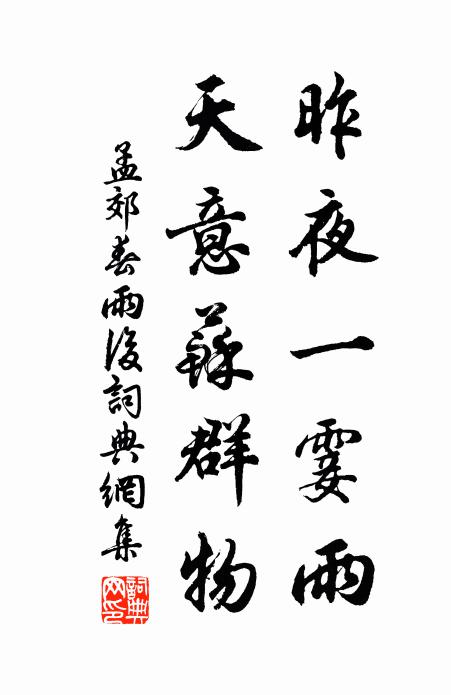 昨夜一霎雨
天意蘇群物
孟郊春雨後詞典網集
詞典网印